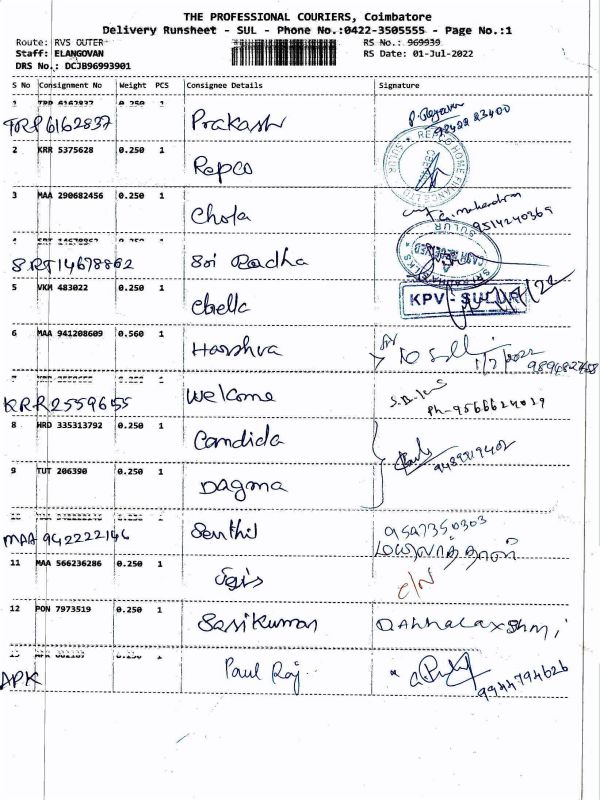 THE PROFESSIONAL COURIERS, Coimbatore
Delivery Runsheet - SUL - Phone No.:0422-3505555 - Page No.:1
Route: RVS OUTER
Staff: ELANGOVAN
DRS No.: DCJB96993901
RS No.: 969939
RS Date: 01-Jul-2022
S No Consignment No Weight PCS Consignee Details Signature
1 TRP 6162837 0.250 1
TRP 6162837 Prakash
2 KRR 5375628 0.250 1 Repco
REPCO HOME FINANCE LTD SULUR
3 MAA 290682456 0.250 1 Chola
9514240369
SRT 14678862 Sri Radha
SRI RADHA SILKS SULUR
CASH RECEIVED
5 VKM 483022 0.250 1 Chella
KPV - SULUR
6 MAA 941208609 0.560 1 Harshva
1/7/2022
7 0.250 1
KRR 2559655 Welcome
Ph-9566624039
8 HRD 335313792 0.250 1 Candida
9 TUT 206390 0.250 1 Dagma
MAA 942222146 Senthil
9597350303
11 MAA 566236286 0.250 1
C/N
12 PON 7973519 0.250 1 Sasikumar
13 0.250 1
APK Paul Raj
9944794626